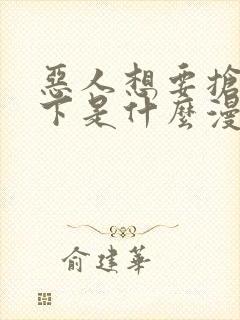 惡人想要搶
下是什麼漫
俞建華